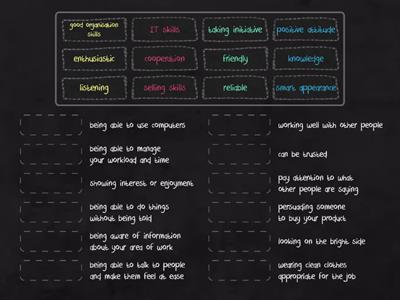 good organisation
skills
IT skills
taking initiative
positive attitude
enthusiastic
cooperation
friendly
knowledge
listening
selling skills
reliable
smart appearance
being able to use computers
being able to manage
your workload and time
showing interest or enjoyment
being able to do things
without being told
being aware of information
about your area of work
being able to talk to people
and make them feel at ease
working well with other people
can be trusted
pay attention to what
other people are saying
persuading someone
to buy your product
looking on the bright side
wearing clean clothes
appropriate for the job